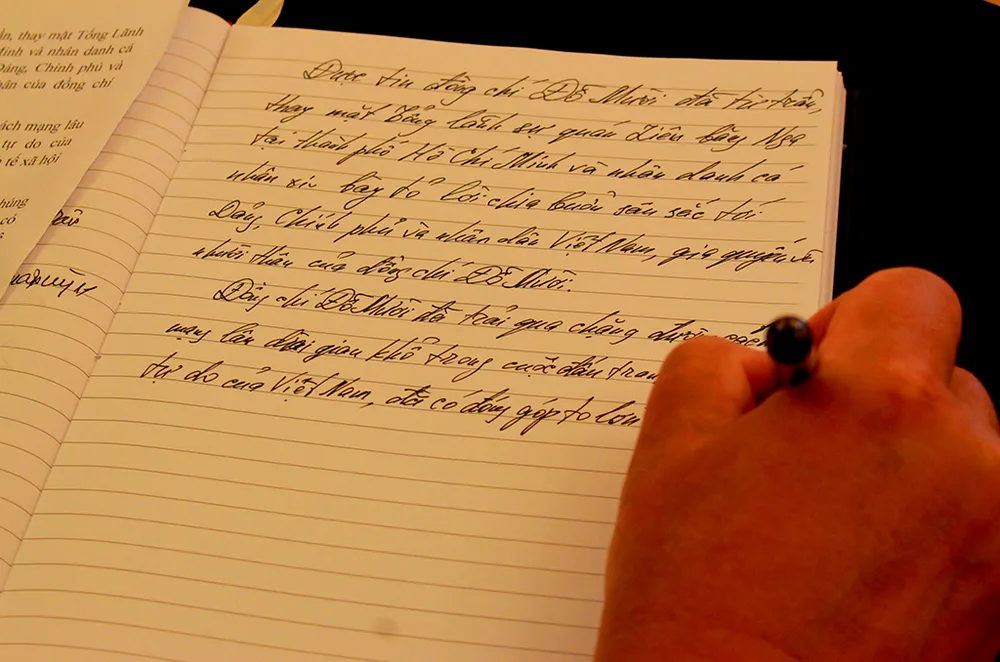 ần, thay mặt Tổng Lãnh
Minh và nhân danh cá
Đảng, Chính phủ và
hân của đồng chí
ách mạng lâu
tự do của
tế xã hội
húng
có
Được tin đồng chí Đỗ Mười đã từ trần,
thay mặt Tổng lãnh sự quán Liên bang Nga
tại thành phố Hồ Chí Minh và nhân danh cá
nhân xin bày tỏ lời chia buồn sâu sắc tới
Đảng, Chính phủ và nhân dân Việt Nam, gia quyến và
người thân của đồng chí Đỗ Mười.
Đồng chí Đỗ Mười đã trải qua chặng đường cách
mạng lâu dài gian khổ trong cuộc đấu tran
tự do của Việt Nam, đã có đóng góp to lớn